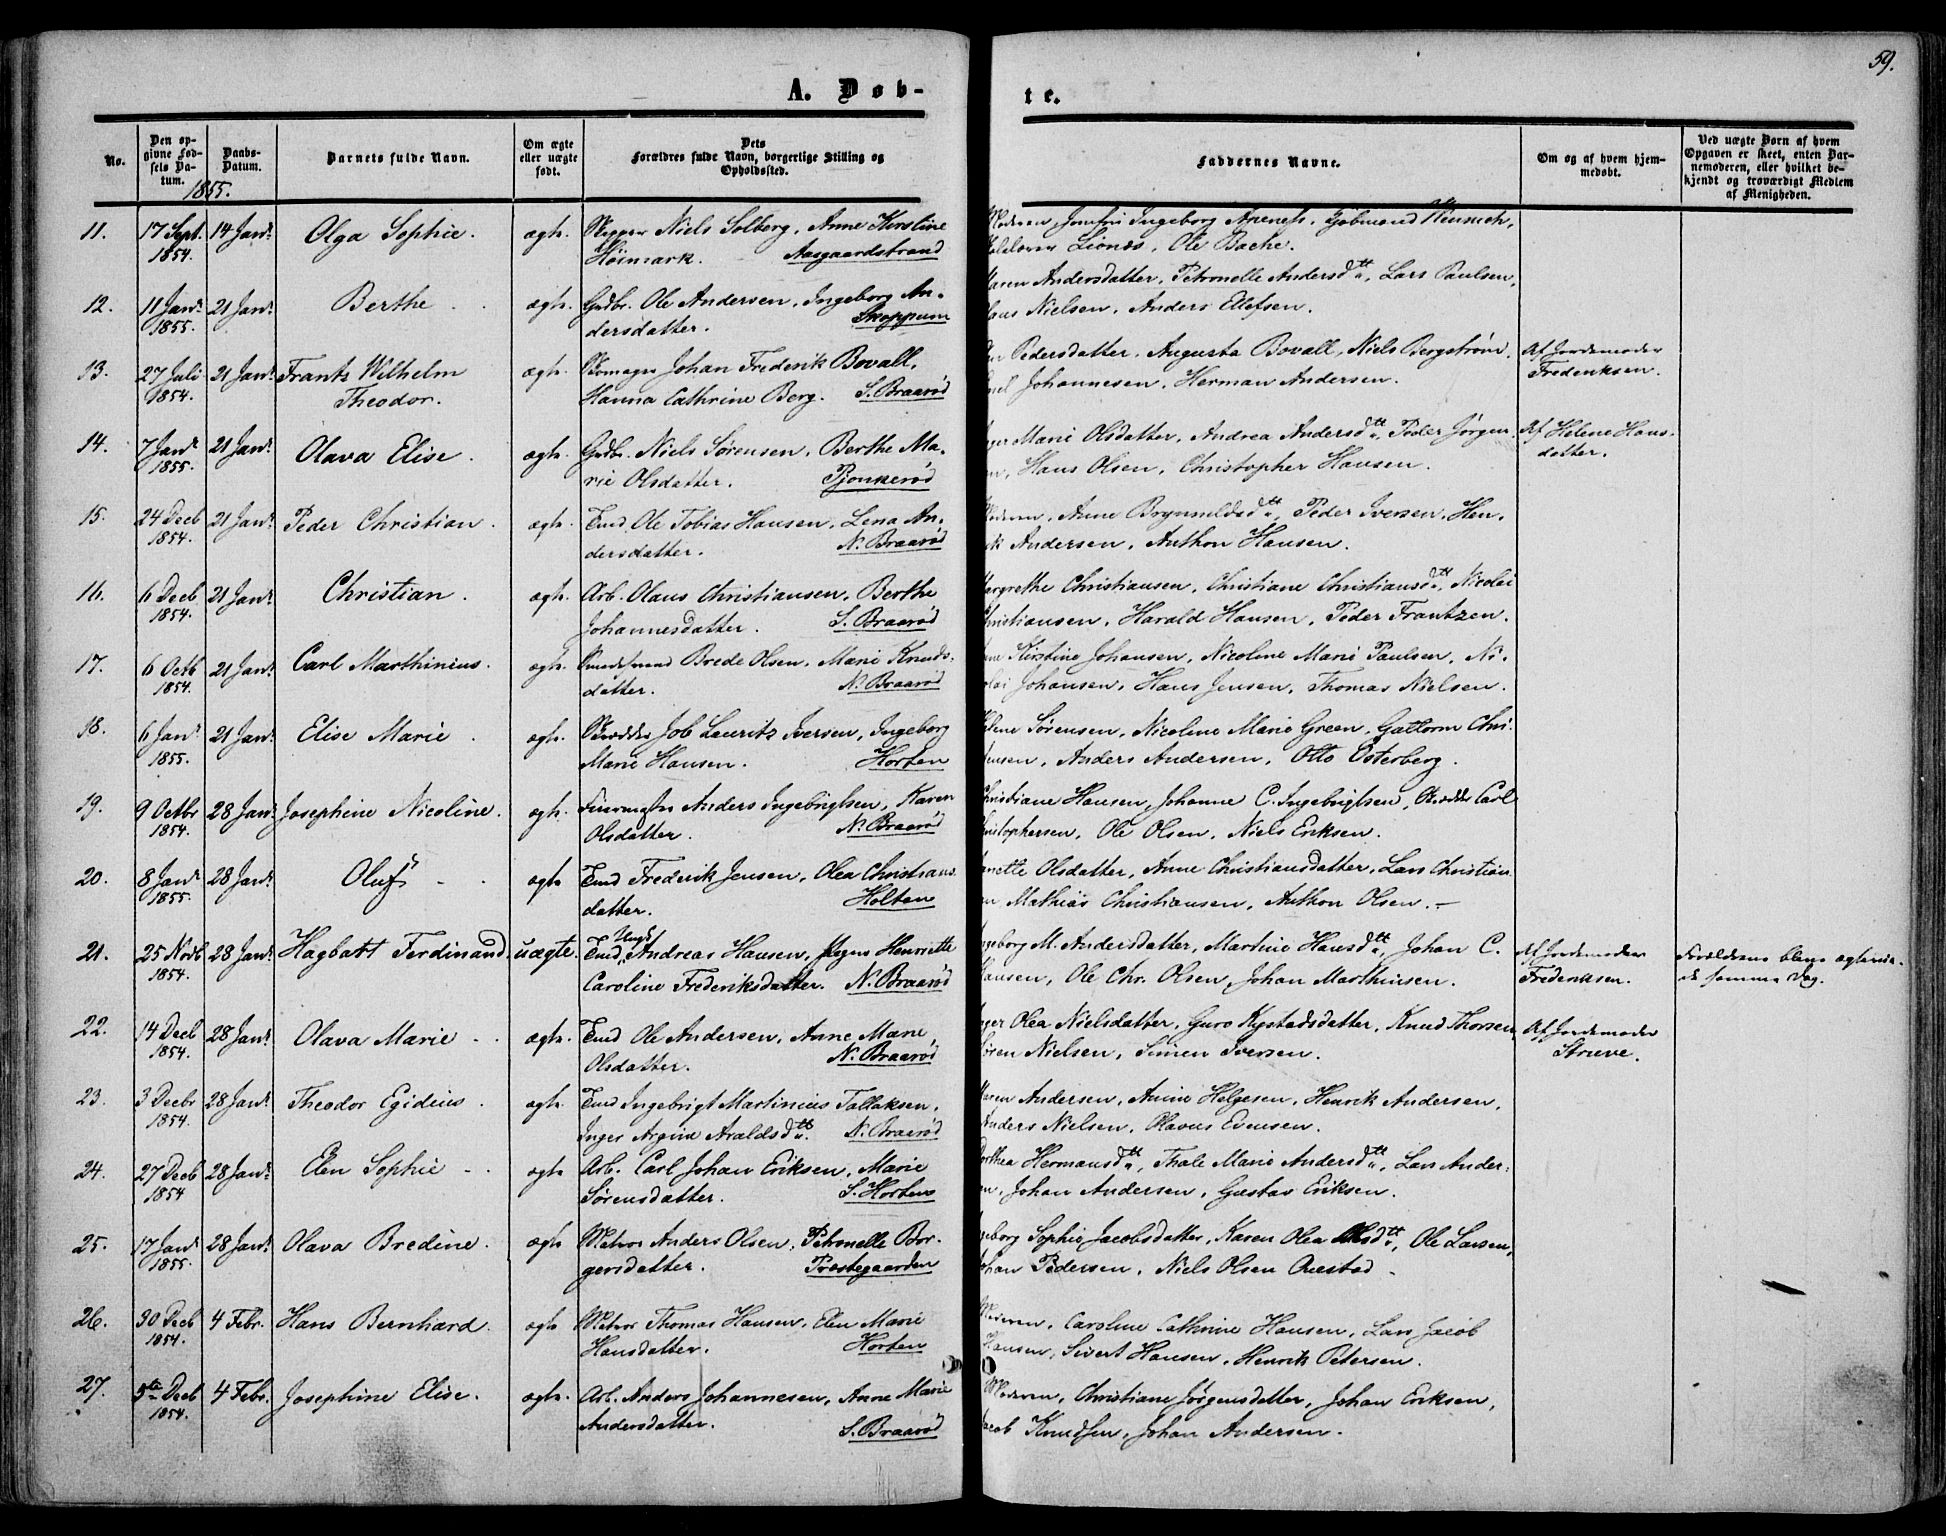 59.
A. Døb-
te.
No.
Den op-
givne Fød-
sels Da-
tum.
Daabs-
Datum.
Barnets fulde Navn.
Om ægte
eller uægte
født.
Dets
Forældres fulde Navn, borgerlige Stilling og
Opholdssted.
Faddernes Navne.
Om og af hvem hjem-
medøbt.
Ved uægte Børn af hvem
Opgaven er skeet, enten Bar-
nemoderen, eller hvilket be-
kjendt og troværdigt Medlem
af Menigheden.
1855.
11. 17 Sept. 14 Janr. Olga Sophie. ægte. Skipper Niels Solberg, Anne Kirstine
1854. Høimark. Aasgaardstrand
Moderen, Jomfru Ingeborg
Lionæs, Ole Bache.
12. 11 Janr. 21 Janr. Berthe. ægte. Grdbr. Ole Andersen, Ingeborg An-
1855. dersdatter. Skoppum
Maren Andersdatter, Petronelle Andersdtt., Lars Paulsen,
Nielsen, Anders Ellefsen.
13. 27 Juli 21 Janr. Frantz Wilhelm ægte. Skomager Johan Frederik Bovall,
1854. Theodor. Hanna Cathrine Berg. S. Braarød
Pedersdatter, Augusta Bovall, Niels Bergstrøm, Af Jordemoder
Johannesen, Herman Andersen. Frederiksen.
14. 7 Janr 21 Janr. Olava Elise. ægte. Grdbr. Niels Sørensen, Berthe Ma-
1855. rie Olsdatter. Pjonkerød
Marie Olsdatter, Andrea Andersdtt., Peder Jørgen Af Helene Hans-
Hans Olsen, Christopher Hansen. datter.
15. 24 Decb 21 Janr. Peder Christian. ægte. Tmd. Ole Tobias Hansen, Lena An-
1854. dersdatter. N. Braarød
Moderen, Anne Brynildsdtt., Peder Iversen, Hen-
rik Andersen, Anthon Hansen.
16. 6 Decb 21 Janr. Christian. ægte. Arb. Olaus Christiansen, Berthe
1854. Johannesdatter. S. Braarød
Margrethe Christiansen, Christiane Christiansdtt., Nicolai
Christiansen, Harald Hansen, Peder Frantzen.
17. 6 Octb 21 Janr. Carl Marthinius. ægte. Brede Olsen, Marie Knuds-
1854. datter. N. Braarød
Kirstine Johansen, Nicoline Marie Paulsen, Ni-
colai Johansen, Hans Jensen, Thomas Nielsen.
18. 6 Janr 21 Janr. Elise Marie. ægte. Skrædder Job Lauritz Iversen, Ingeborg
1855. Marie Hansen. Horten
Helene Sørensen, Nicoline Marie Green, Gattorm Chri-
stensen, Anders Andersen, Otto Osterberg.
19. 9 Octbr 28 Janr. Josephine Nicoline. ægte. Anders Ingebrigtsen, Karen
1854. Olsdatter. N. Braarød
Christiane Hansen, Johanne C. Ingebrigtsen, Skrædder Carl
Christophersen, Ole Olsen, Niels Eriksen.
20. 8 Janr 28 Janr. Oluf ægte Tmd Frederik Jensen, Olea Christians-
1855. datter. Holtan
Olsdatter, Anne Christiansdatter, Lars Christian
Mathias Christiansen, Anthon Olsen.
21. 25 Novb 28 Janr. Hagbatt Ferdinand. uægte. Ungk. Tmd. Andreas Hansen, Pigen Henriette
1854. Caroline Frederiksdatter. N. Braarød
Ingeborg M. Andersdatter, Martine Hansdtt., Johan C. Af Jordemoder Forældrene bleve ægtevie-
Hansen, Ole Chr. Olsen, Johan Marthinsen. Frederiksen. de samme Dag.
22. 14 Decb 28 Janr. Olava Marie ægte. Tmd Ole Andersen, Anne Marie
1854. Olsdatter. N. Braarød
Inger Olea Nielsdatter, Guro Kystadsdatter, Knud Thorsen, Af Jordemoder
Søren Nielsen, Simen Iversen. Strüwe.
23. 3 Decbr 28 Janr. Theodor Egidius. ægte. Tmd Ingebrigt Martinius Tallaksen,
1854. Inger Argine Araldsdtt. N. Braarød
Maren Andersen, Anine Helgesen, Henrik Andersen,
Anders Nielsen, Olavus Evensen.
24. 27 Decb 28 Janr. Elen Sophie ægte Arb. Carl Johan Eriksen, Marie
1854 Sørensdatter. S. Horten
Dorthea Hermansdtt., Thale Marie Andersdtt., Lars Ander-
sen, Johan Andersen, Gustav Eriksen.
25. 17 Janr 28 Janr. Olava Bredine. ægte Matros Anders Olsen, Petronelle Bor-
1855. gersdatter. Præstegaarden
Ingeborg Sophie Jacobsdatter, Karen Olea Olsdtt., Ole Larsen,
Johan Pedersen, Niels Olsen
26. 30 Decb 4 Febr. Hans Bernhard. ægte Matros Thomas Hansen, Elen Marie
1854. Hansdatter. Horten
Moderen, Caroline Cathrine Hansen, Lars Jacob
Hansen, Sivert Hansen, Henrik Petersen.
27. 5te Decb 4 Febr. Josephine Elise. ægte. Arb. Anders Johannesen, Anne Marie
1854. Andersdatter. S. Braarød
Moderen, Christiane Jørgensdatter, Johan Eriksen,
Jacob Knudsen, Johan Andersen.